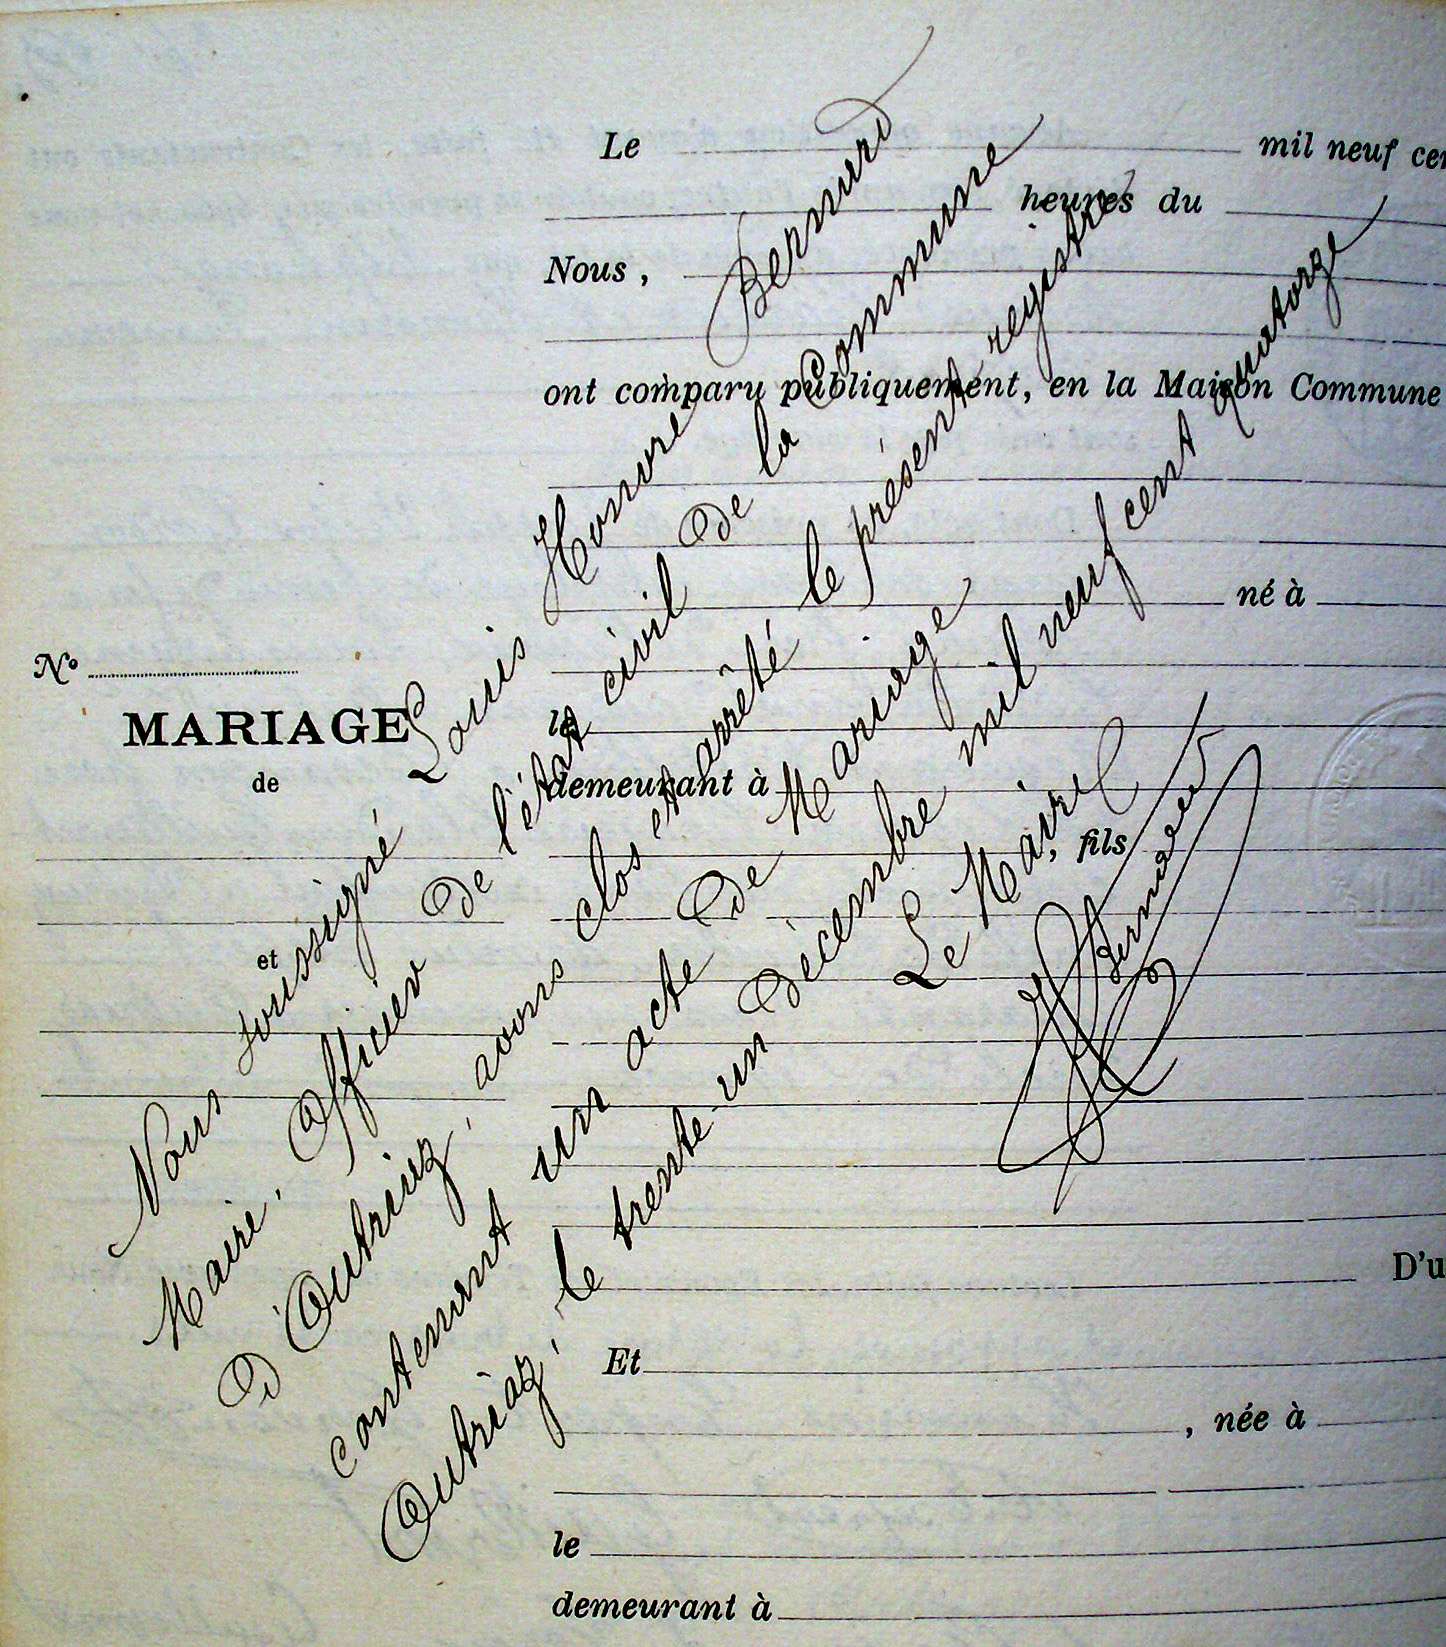 Le mil neuf cen
heures du
Nous ,
ont comparu publiquement, en la Maison Commune
né à
No
MARIAGE
de
et
le
demeurant à
, fils
D'u
Et
, née à
le
demeurant à
Nous soussigné Louis Honoré Bernard
Maire, Officier de l'état civil de la Commune
d'Outriaz, avons clos et arrêté le présent registre
contenant un acte de Mariage
Outriaz, le trente-un décembre mil neuf cent quatorze
Le Maire
Bernard